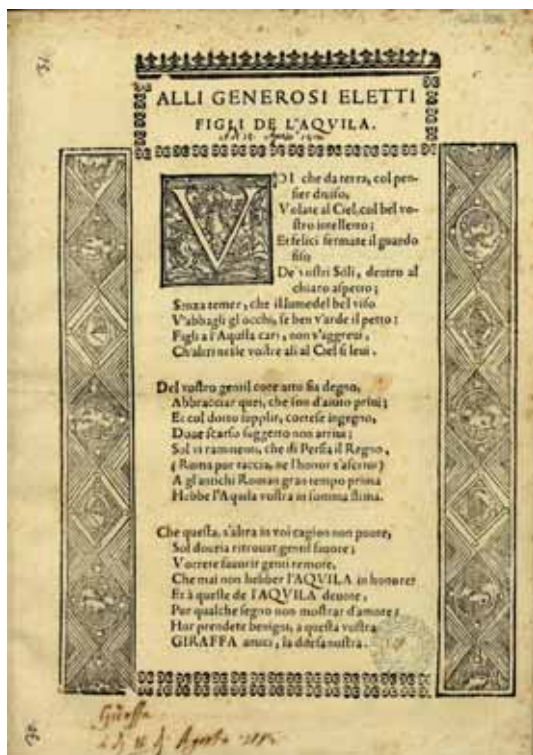 ALLI GENEROSI ELETTI
FIGLI DE L'AQVILA.
VOI che da terra, col pen-
sier diuiso,
Volate al Ciel, col bel vo-
stro intelletto;
Et felici fermate il guardo
fiso
De' vostri Soli, dentro al
chiaro aspetto;
Senza temer, che il lume del bel viso
V'abbagli gl'occhi, se ben v'arde il petto:
Figli a l'Aquila cari, non v'aggreui,
Ch'altri ne le vostre ali al Ciel si leui.
Del vostro gentil core atto sia degno,
Abbracciar quei, che son d'aiuto priui;
Et col dotto supplir, cortese ingegno,
Doue scarso suggetto non arriui;
Sol vi rammenti, che di Persia il Regno,
(Roma pur taccia, ne l'honor s'ascriui)
A gl'antichi Roman gran tempo prima
Hebbe l'Aquila vostra in somma stima.
Che questa, s'altra in voi cagion non puote,
Sol douria ritrouar gentil fauore;
Vorrete fauorir genti remote,
Che mai non hebber l'AQVILA in honore?
Et à quelle de l'AQVILA deuote,
Pur qualche segno non mostrar d'amore?
Hor prendete benigni, a questa vostra
GIRAFFA amici, la difesa nostra.
Giraffa
Agosto